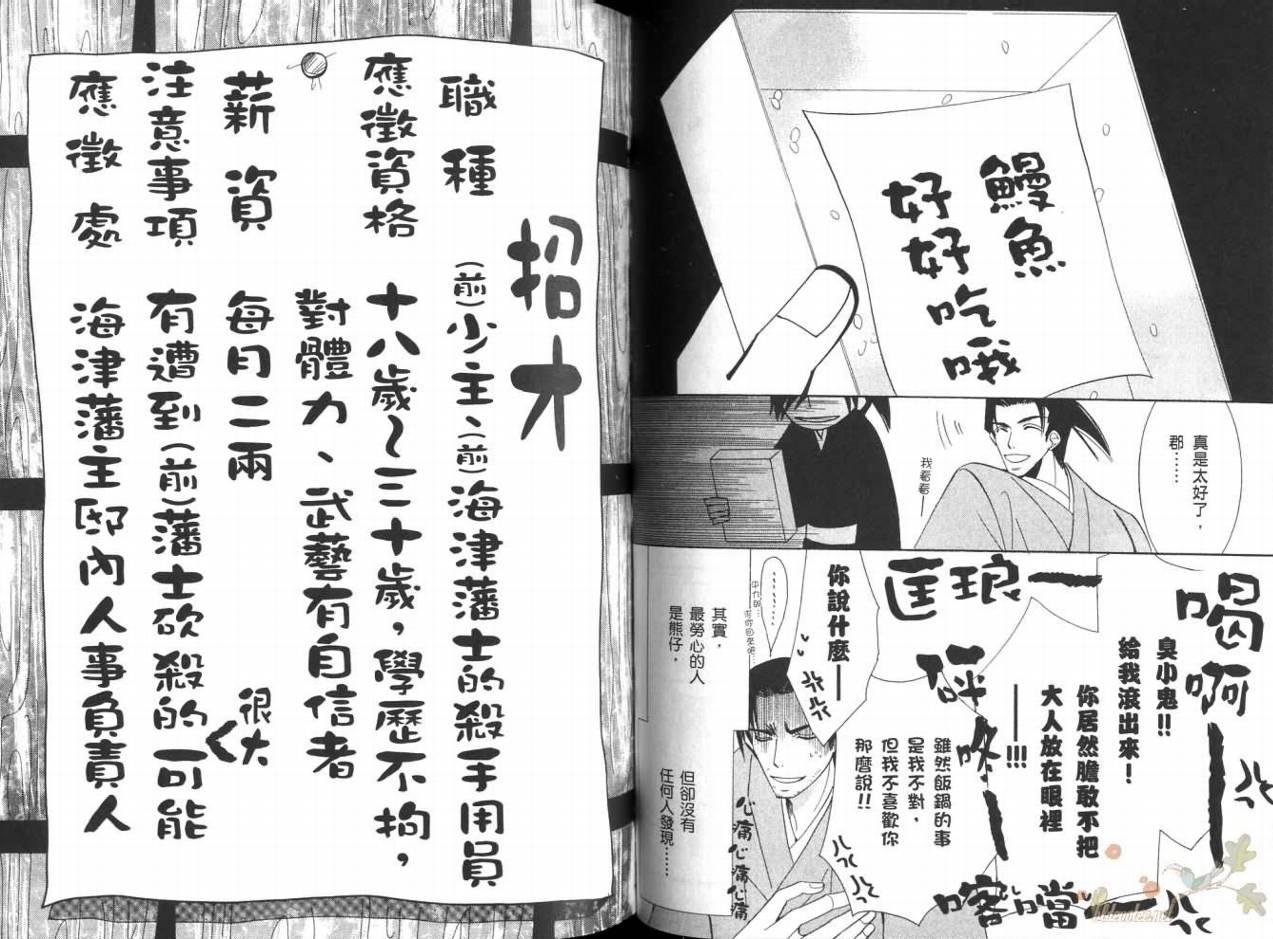 鰻魚
好好吃哦
真是太好了，
郡……
我看看——
喝啊——
臭小鬼!!
給我滾出來！
你居然膽敢不把
大人放在眼裡
——!!!
匡琅——
砰咚——
喀噹——
你說什麼——
雖然飯鍋的事
是我不對，
但我不喜歡你
那麼說!!
心痛心痛心痛
其實，
最勞心的人
是熊仔，
但卻沒有
任何人發現……
招才
職種
(前)少主、(前)海津藩士的殺手用員
應徵資格
十八歲～三十歲，學歷不拘，
對體力、武藝有自信者
薪資
每月二兩
注意事項
有遭到(前)藩士砍殺的可能
很大
應徵處
海津藩主邸內人事負責人